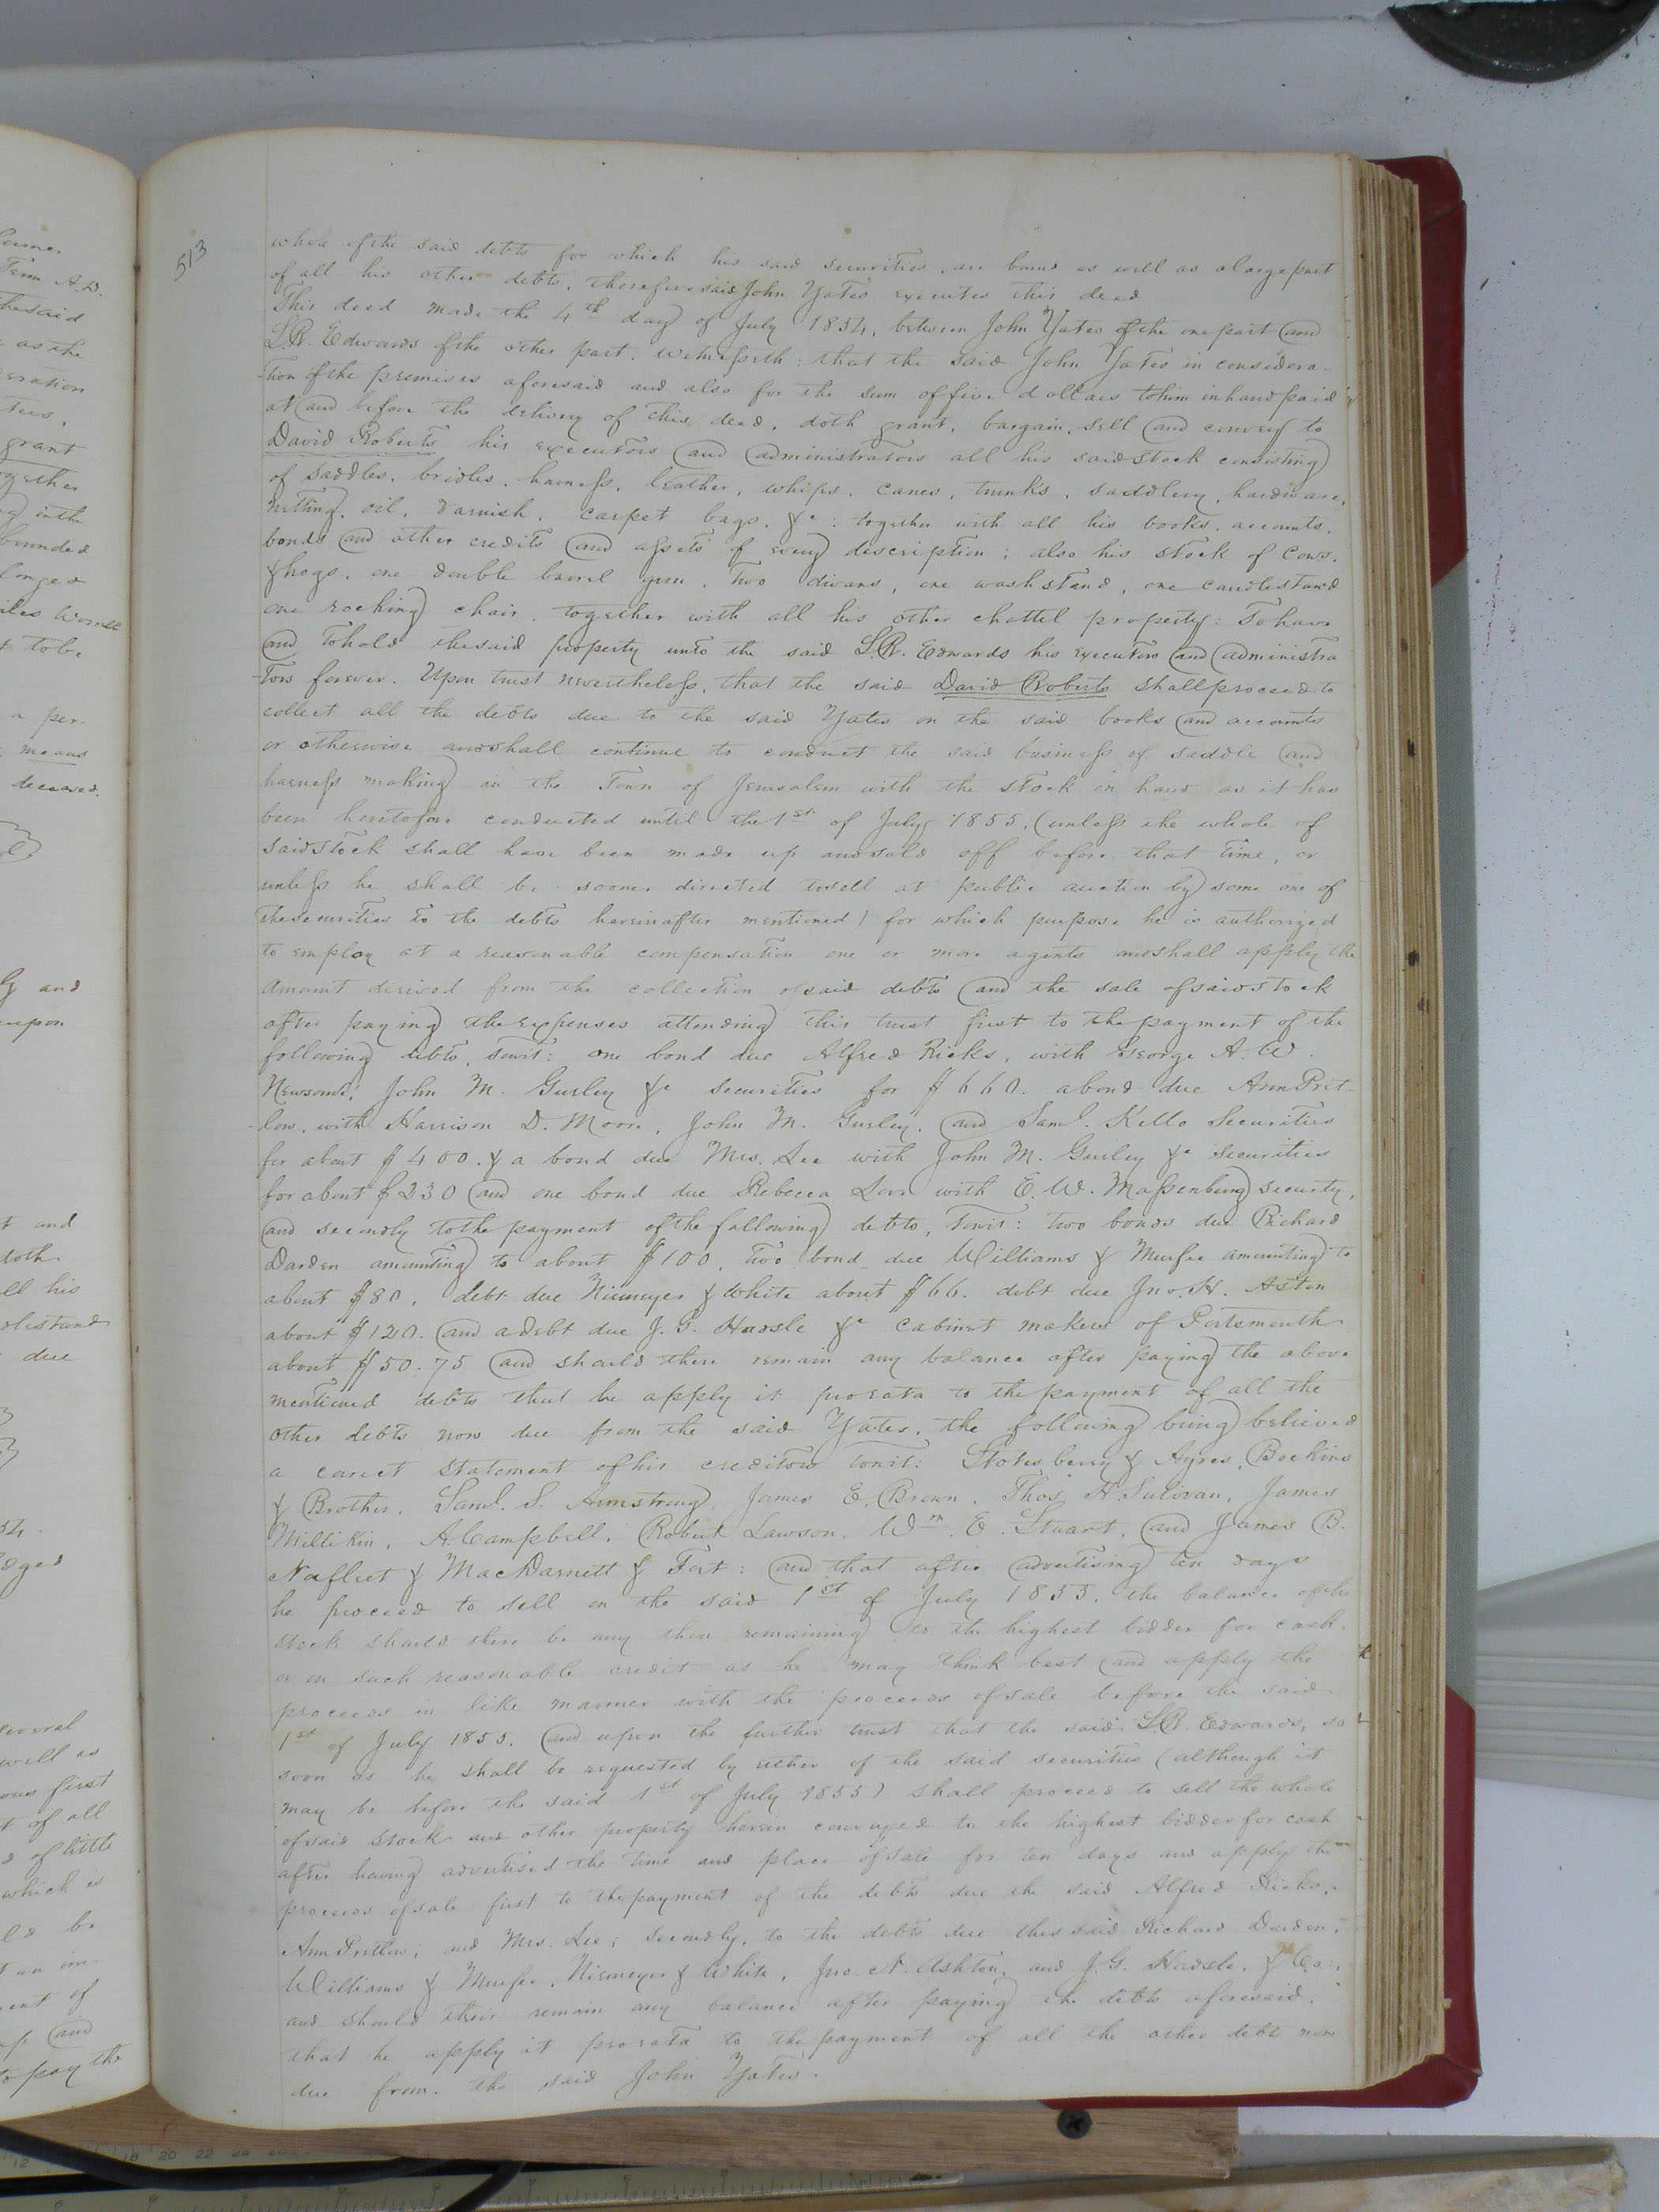 513
whole of the said debts for which his said securities are bound as well as a large part
of all his other debts, therefore said John Yates executes this deed
This deed made the 4th day of July 1854, between John Yates of the one part and
L.R. Edwards of the other part. Witnesseth: that the said John Yates in considera-
-tion of the premises aforesaid and also for the sum of five dollars to him in hand paid
at and before the delivery of this deed, doth grant, bargain, sell and convey to
David Roberts his executors and administrators all his said stock consisting
of saddles, bridles, harness, leather, whips, canes, trunks, saddlery, hardware,
netting, oil, varnish, carpet bags, &c: together with all his books, accounts,
bonds and other credits and assets of every description; also his stock of cows,
& hogs, one double barrel gun, two divans, one wash stand, one candlestand
one rocking chair, together with all his other chattel property: To have
and to hold the said property unto the said L.R. Edwards his executors and administra
-tors forever. Upon trust nevertheless, that the said David Roberts shall proceed to
collect all the debts due to the said Yates on the said books and accounts
or otherwise and shall continue to conduct the said business of saddle and
harness making in the Town of Jerusalem with the stock in hand as it has
been heretofore conducted until the 1st of July 1855, (unless the whole of
said stock shall have been made up and sold off before that time, or
unless he shall be sooner directed to sell at public auction by some one of
the securities to the debts hereinafter mentioned) for which purpose he is authorized
to employ at a reasonable compensation one or more agents and shall apply the
amount derived from the collection of said debts and the sale of said stock
after paying the expenses attending this trust first to the payment of the
following debts, towit: one bond due Alfred Ricks, with George A. W.
Newsome, John M. Gurley &c securities for $660. a bond due Ann Pret-
-low, with Harrison D. Moore, John M. Gurley, and Saml. Kello Securities
for about $400. & a bond due Mrs. Lee with John M. Gurley &c Securities
for about $230 and one bond due Rebecca with E. W. Massenburg security,
and secondly to the payment of the following debts, towit: two bonds due Richard
Darden amounting to about $100, two bond due Williams & Murfee amounting to
about $80, debt due Niemeyer & White about $66. debt due Jno. H. Aston
about $120. and a debt due J. G. Hadsle &c cabinet makers of Portsmouth
about $50.75 and should there remain any balance after paying the above
mentioned debts that he apply it prorata to the payment of all the
other debts now due from the said Yates, the following being believed
a correct statement of his creditors towit: Stotesberry & Ayres, Beckins
& Brother, Saml. S. Armstrong, James E. Brown, Thos. H. Sulivan, James
Millikin, A. Campbell, Robert Lawson, Wm. E. Stuart, and James B.
Nafleet & MacDarnett & Fort: and that after advertising ten days
he proceed to sell on the said 1st of July 1855, the balance of the
stock should there be any then remaining to the highest bidder for cash,
or on such reasonable credit as he may think best and apply the
proceeds in like manner with the proceeds of sale before the said
1st of July 1855. and upon the further trust that the said L.R. Edwards, so
soon as he shall be requested by either of the said securities (although it
may be before the said 1st of July 1855) shall proceed to sell the whole
of said stock and other property herein conveyed to the highest bidder for cash
after having advertised the time and place of sale for ten days and apply the
proceeds of sale first to the payment of the debts due the said Alfred Ricks,
Ann Pretlow, and Mrs. Lee; secondly, to the debts due the said Richard Darden,
Williams & Murfee, Niemeyer & White, Jno. N. Ashton, and J. G. Hadsle, & Co:,
and should their remain any balance after paying the debts aforesaid,
that he apply it prorata to the payment of all the other debts now
due from the said John Yates.